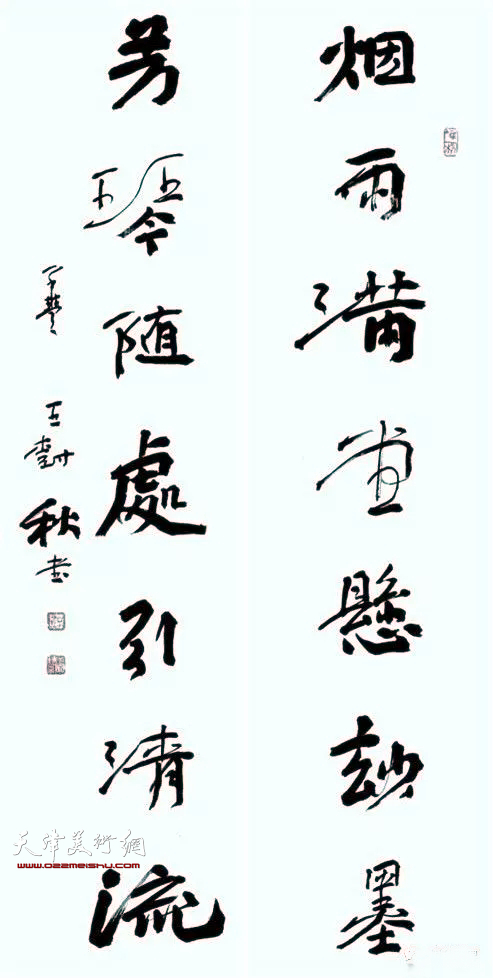 烟雨满堂懸玅墨
芳琴随處引清流
王樹秋書
天津美术網
www.022meishu.com